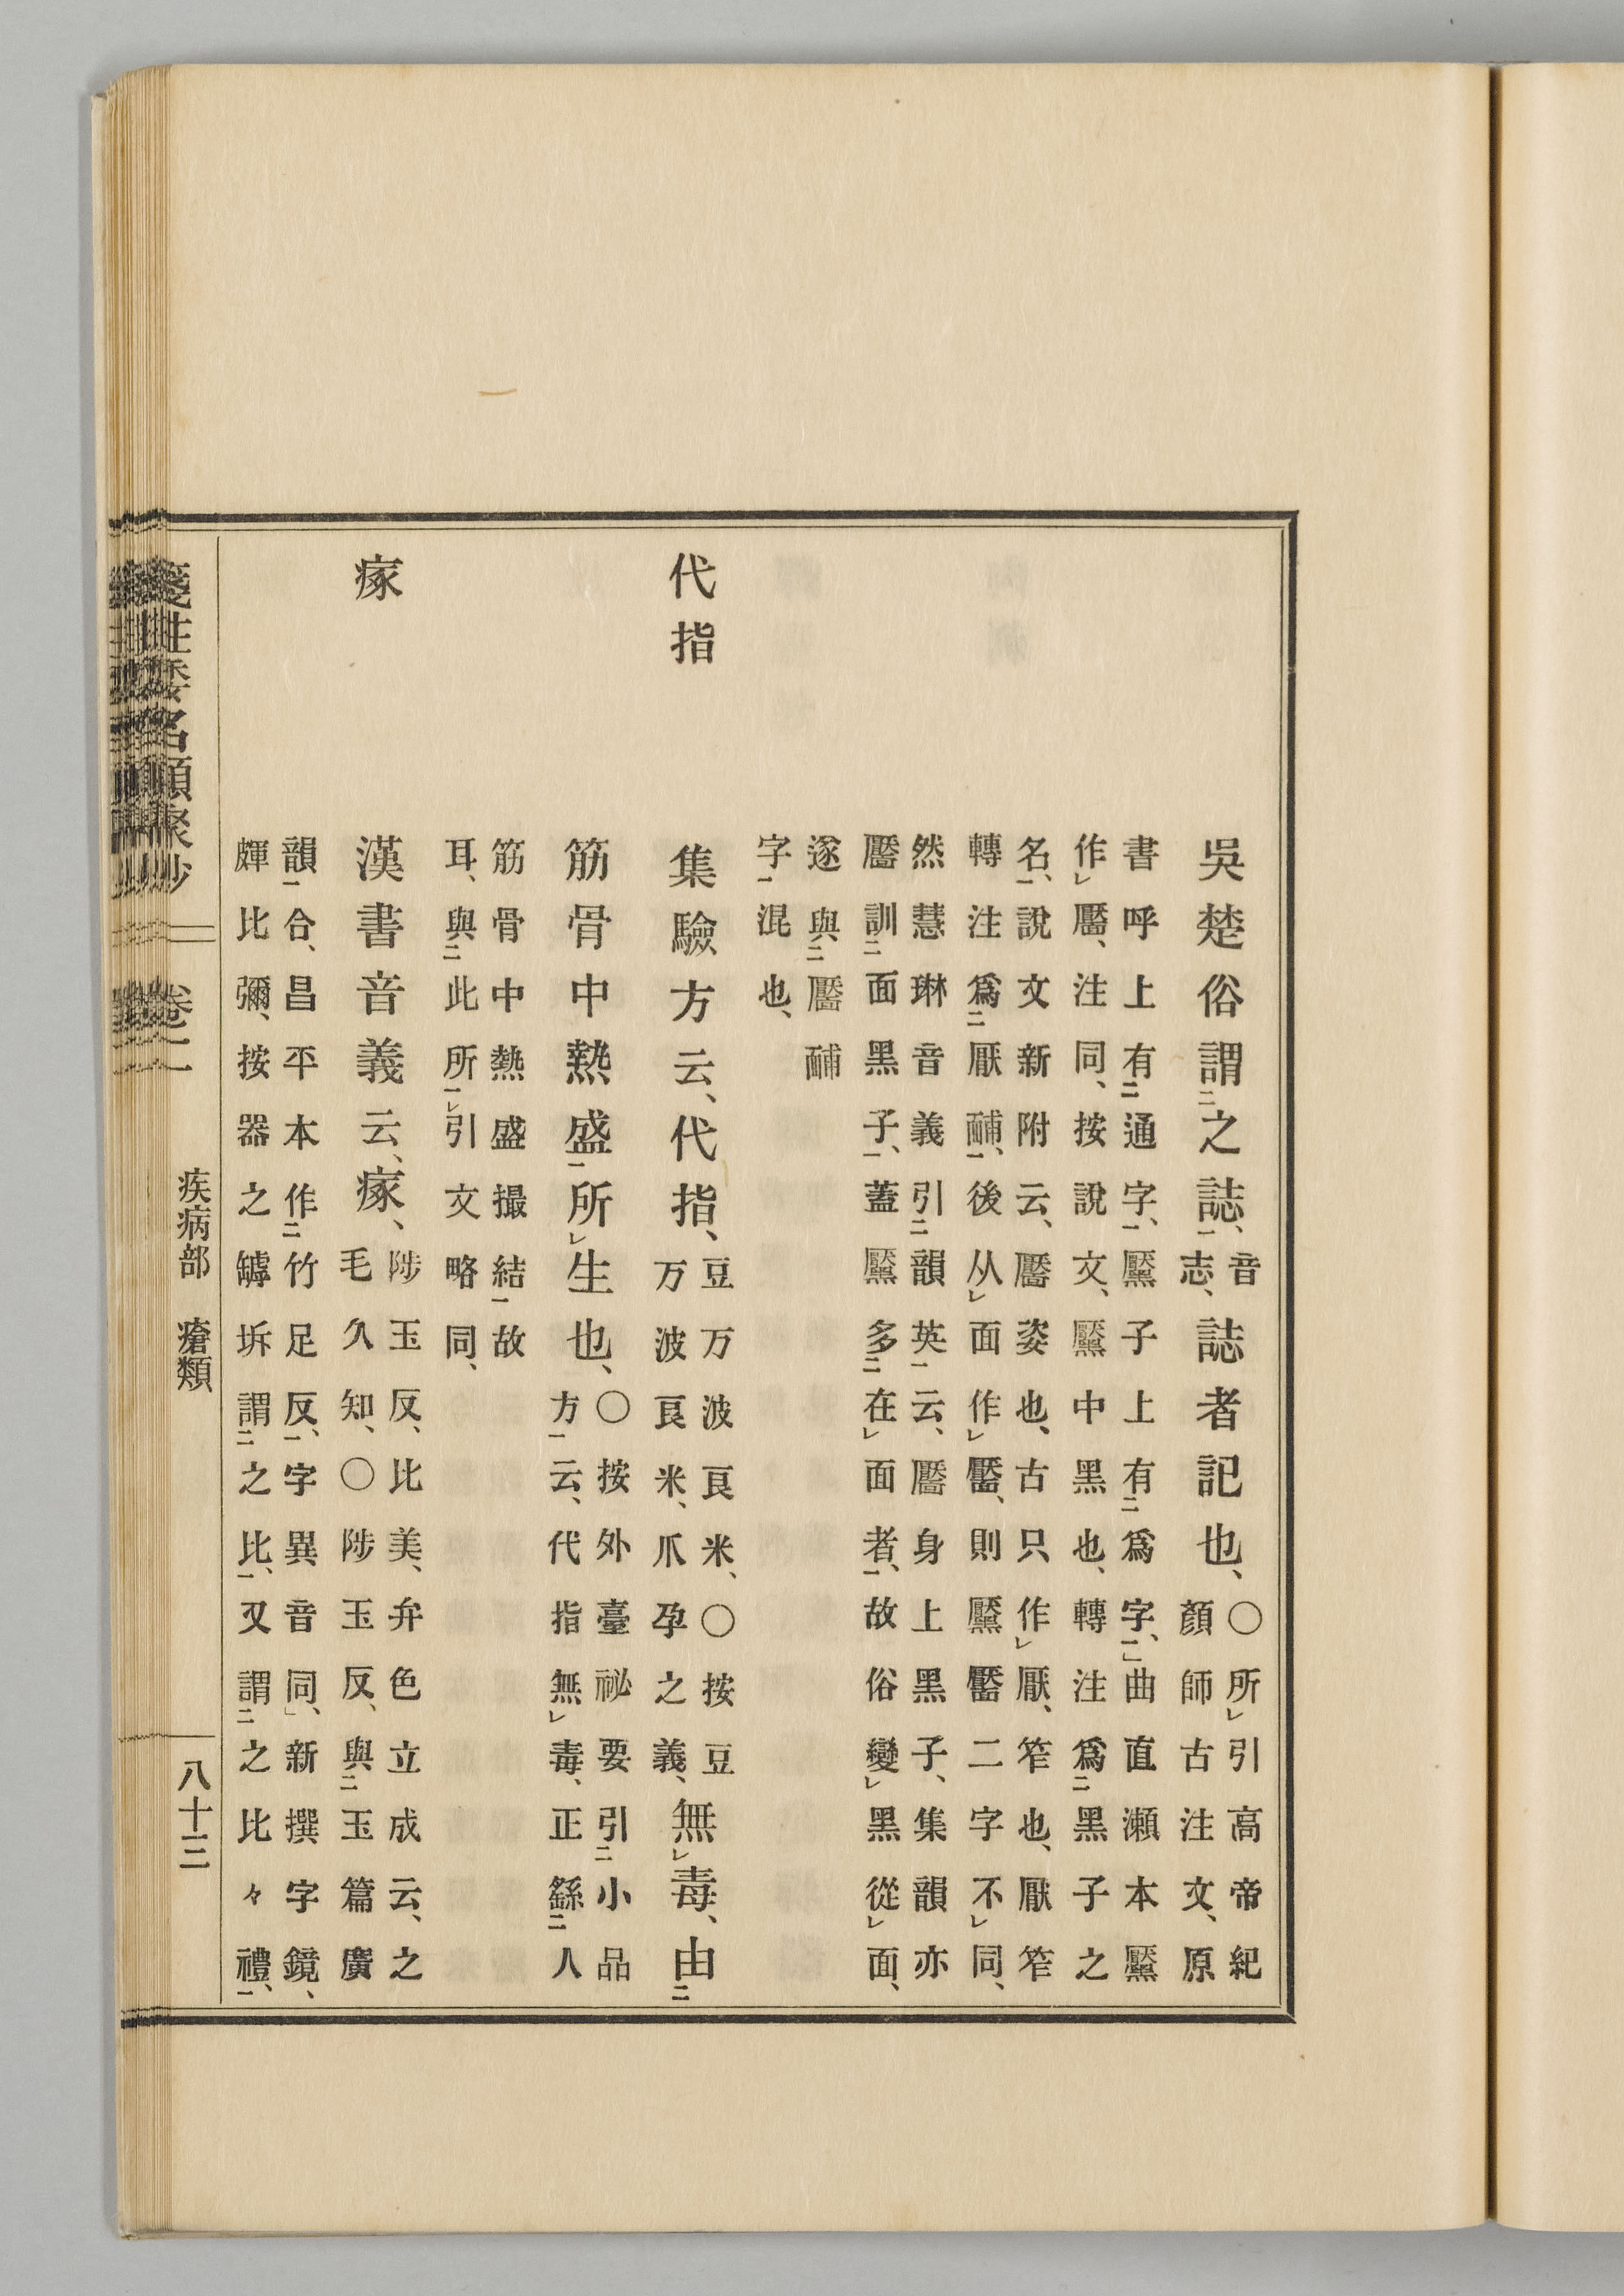 吳楚俗謂㆓之誌㆒、音志、誌者記也、○所㆑引高帝紀顏師古注文、原
書呼上有㆓通字㆒、黶子上有㆓爲字㆒、」曲直瀨本黶
作㆑靨、注同、按說文、黶中黑也、轉注爲㆓黑子之
名㆒、說文新附云、靨姿也、古只作㆑厭、笮也、厭笮
轉注爲㆓厭䩉㆒、後从㆑面作㆑靨、則黶靨二字不㆑同、
然慧琳音義引㆓韻英㆒云、靨身上黑子、集韻亦
靨訓㆓面黑子㆒、蓋黶多㆓在㆑面者㆒、故俗變㆑黑從㆑面、
遂與㆓靨䩉
字㆒混也、
代指
集驗方云、代指、豆万波良米、○按豆万波良米、爪孕之義、無㆑毒、由㆓
筋骨中熱盛㆒所㆑生也、○按外臺祕要引㆓小品方㆒云、代指無㆑毒、正繇㆓人
筋骨中熱盛撮結㆒故
耳、與㆓此所㆒㆑引文略同、
瘃
漢書音義云、瘃、陟玉反、比美、弁色立成云、之毛久知、○陟玉反、與㆓玉篇廣
韻㆒合、昌平本作㆓竹足反㆒、字異音同、」新撰字鏡、
皹比彌、按器之罅坼謂㆓之比㆒、又謂㆓之比々禮㆒、
箋注倭名類聚抄 卷二 疾病部 瘡類 八十三